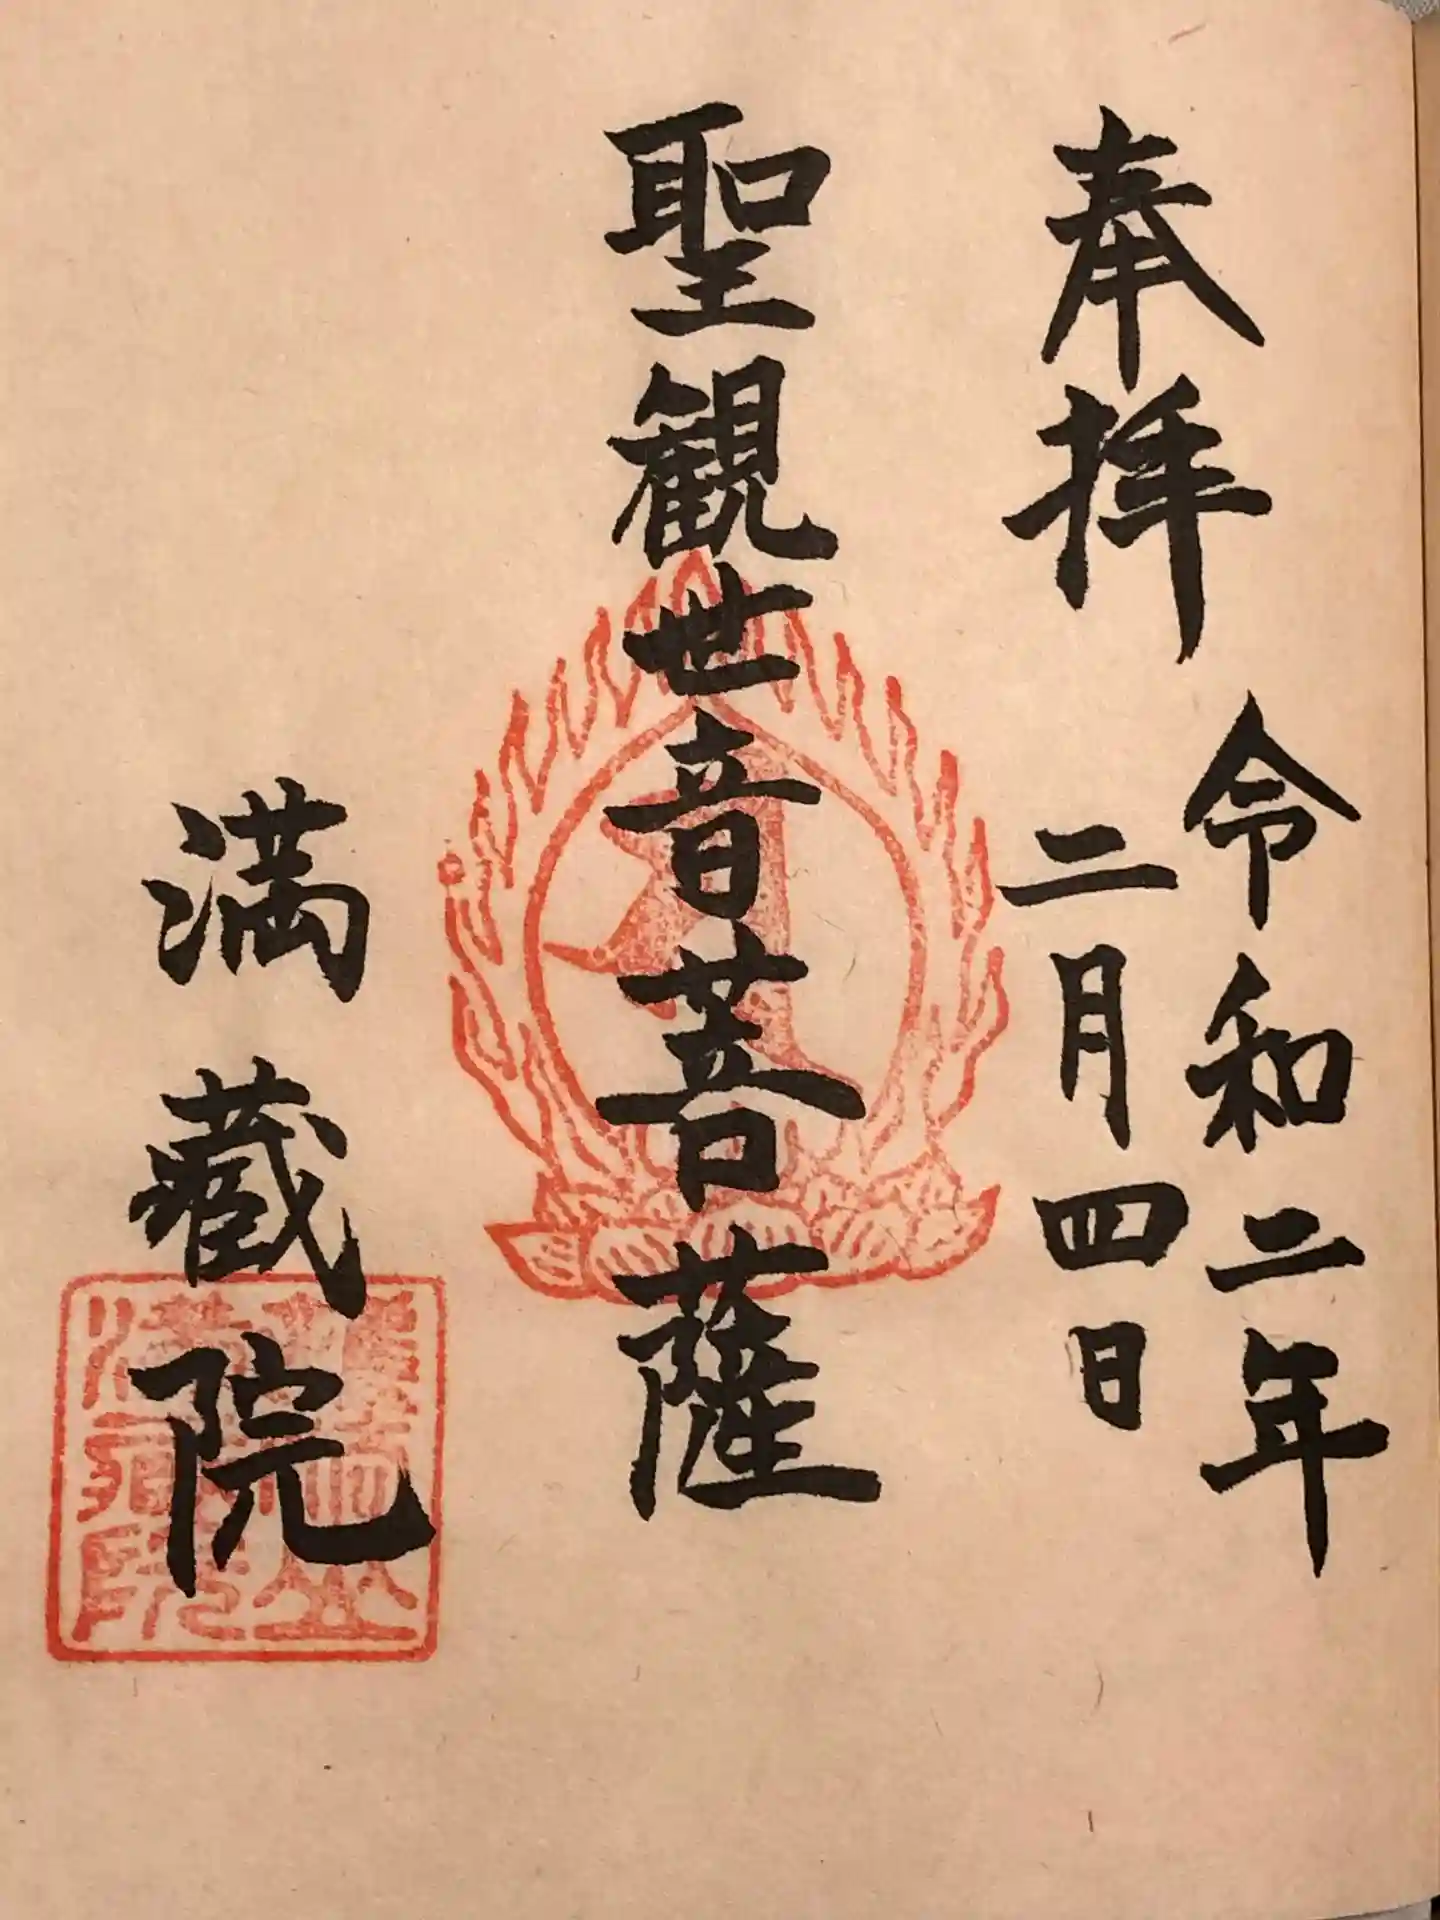 奉拝
令和二年
二月四日
聖観世音菩薩
満蔵院